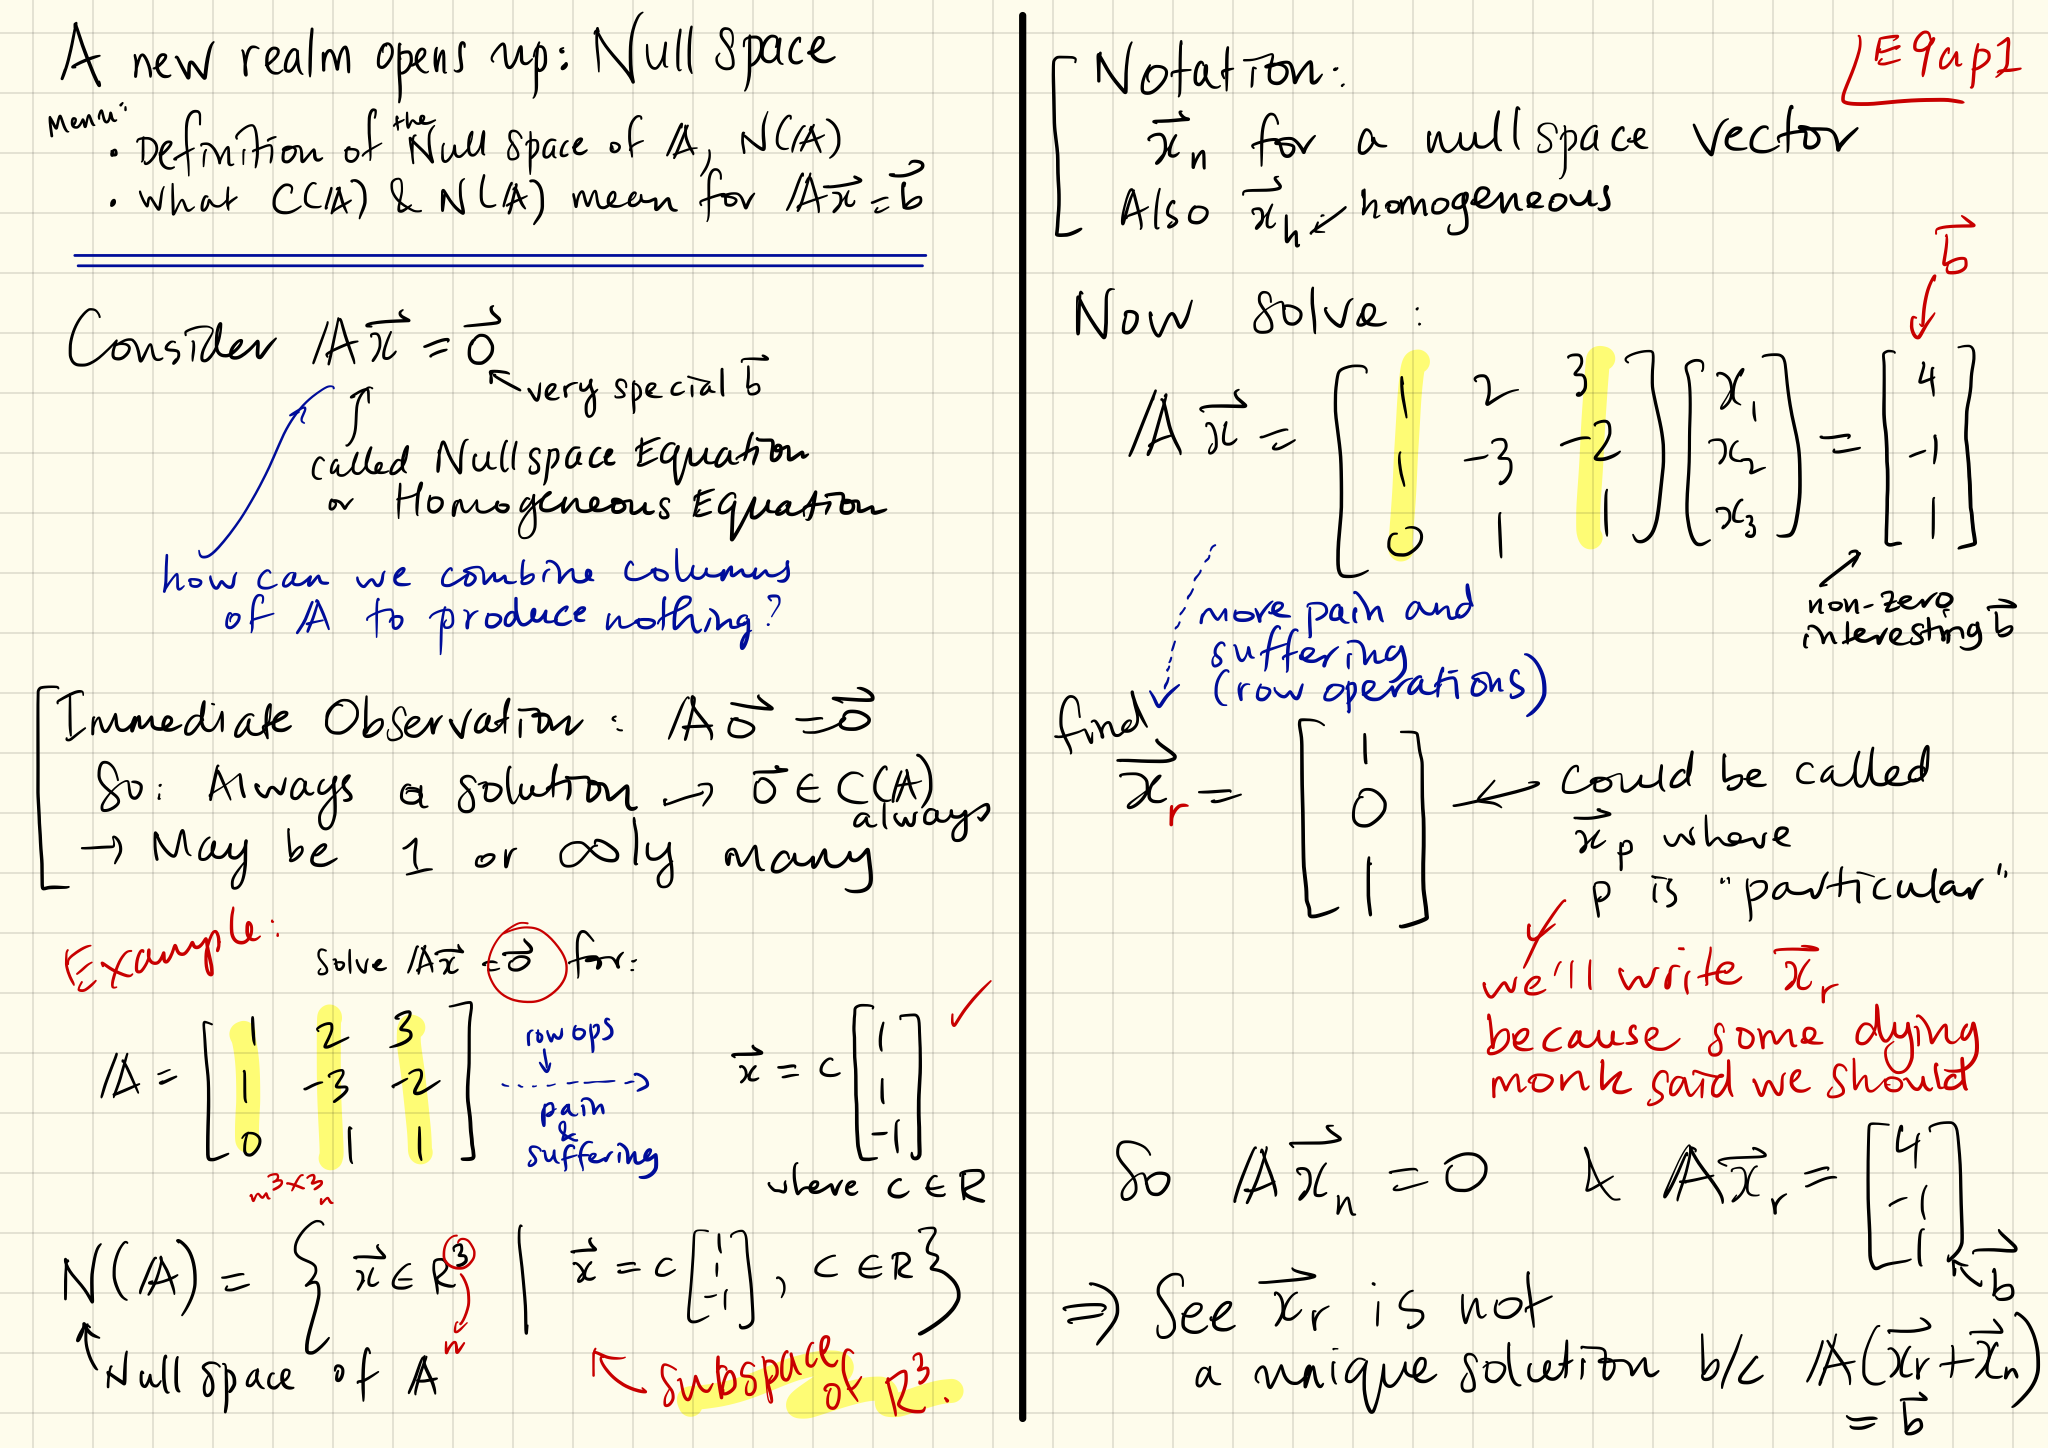 A new realm opens up: Null Space
Menu:
• Definition of the Null Space of A, N(A)
• What C(A) & N(A) mean for Ax⃗ = b⃗
Consider Ax⃗ = 0⃗
very special b⃗
called Nullspace Equation
or Homogeneous Equation
how can we combine columns
of A to produce nothing?
Immediate Observation: A0⃗ = 0⃗
So: Always a solution → 0⃗ ∈ C(A)
always
→ May be 1 or ∞ly many
Example:
Solve Ax⃗ = 0⃗ for:
A = [1 2 3
1 -3 -2
0 1 1]
m 3×3 n
row ops
pain
&
suffering
x⃗ = c [1
1
-1]
where c ∈ R
N(A) = { x⃗ ∈ R³ | x⃗ = c [1 1 -1], c ∈ R }
n
Null space of A
subspace
of R³.
E9ap1
Notation:
x⃗n for a nullspace vector
Also x⃗h homogeneous
b⃗
Now solve:
Ax⃗ = [1 2 3] [x1] = [4]
[1 -3 -2] [x2] [-1]
[0 1 1] [x3] [1]
non-zero
interesting b⃗
more pain and
suffering
(row operations)
find
x⃗r = [1
0
1]
could be called
x⃗p where
p is "particular"
we'll write x⃗r
because some dying
monk said we should
So Ax⃗n = 0 & Ax⃗r = [4
-1
1]
b⃗
⇒ See x⃗r is not
a unique solution b/c A(x⃗r + x⃗n)
= b⃗